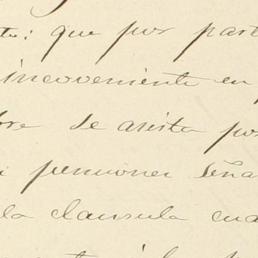 que por part
incoveniente en
se asista por
pensiones seña
la clausula cua